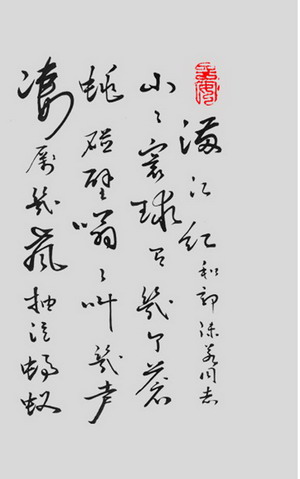 满江红 和郭沫若同志
小小寰球有幾个蒼
蝇碰壁嗡嗡叫幾声
凄厲幾声抽泣螞蚁